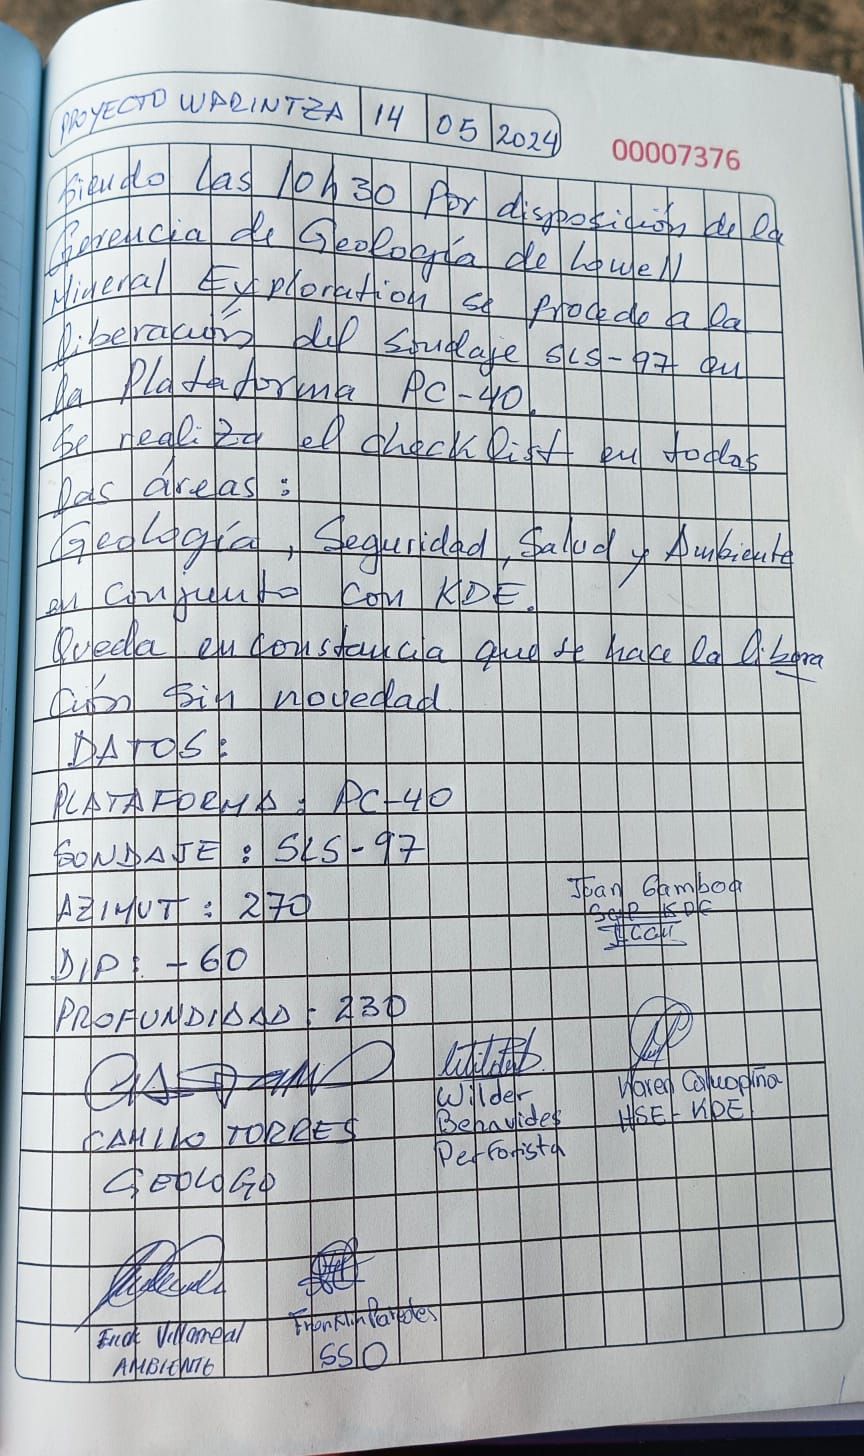 PROYECTO WARINTZA 14 05 2024
00007376
Siendo las 10h30 Por disposición de la
Gerencia de Geología de Lowell
Mineral Exploration se procede a la
liberación del sondaje SLS-97 en
la Plataforma PC-40.
Se realiza el check list en todas
las áreas:
Geología, Seguridad, Salud y Ambiente
en conjunto con KDE.
Queda en constancia que se hace la libera
ción sin novedad
DATOS:
PLATAFORMA: PC-40
SONDAJE: SLS-97
AZIMUT: 270
DIP: -60
PROFUNDIDAD: 230
Joan Gamboa
KDE
CAMILO TORRES
GEOLOGO
Wilder
Benavides
Perforista
Karen
HSE-KDE
Erick Villarreal
AMBIENTE
Franklin Paredes
SSO